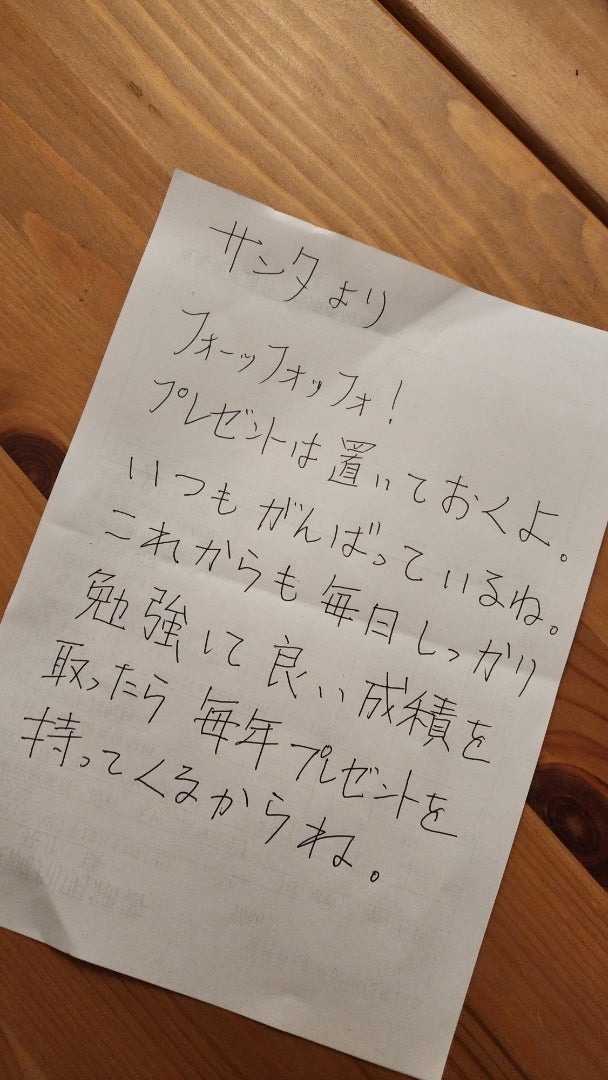 サンタより
フォーッフォッフォ!
プレゼントは置いておくよ。
いつもがんばっているね。
これからも毎日しっかり
勉強して良い成績を
取ったら毎年プレゼントを
持ってくるからね。